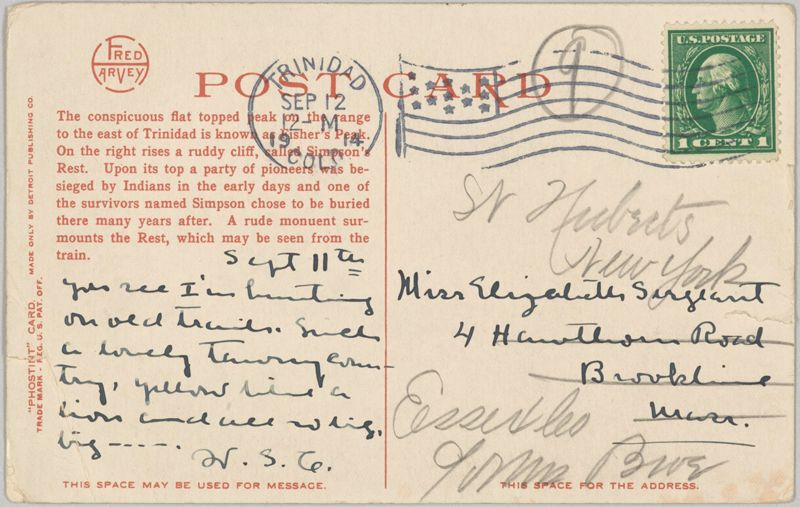 FRED HARVEY
POST CARD
TRINIDAD
SEP 12
12-M
19 14
COLO.
9
U.S. POSTAGE
1 CENT 1
The conspicuous flat topped peak on the range
to the east of Trinidad is known as Fisher's Peak.
On the right rises a ruddy cliff, called Simpson's
Rest. Upon its top a party of pioneers was be-
sieged by Indians in the early days and one of
the survivors named Simpson chose to be buried
there many years after. A rude monuent sur-
mounts the Rest, which may be seen from the
train.
Sept 11th
You see I'm hunting
on old trails. Such
a lovely tawny coun-
try, yellow like a
lion and all so big,
big ----.
W. S. C.
THIS SPACE MAY BE USED FOR MESSAGE.
"PHOSTINT" CARD. MADE ONLY BY DETROIT PUBLISHING CO.
TRADE MARK - REG. U. S. PAT. OFF.
St Huberts
New York
Miss Elizabeth Sergeant
4 Hawthorn Road
Brookline
Mass.
Essex Co
c/o Mrs
THIS SPACE FOR THE ADDRESS.